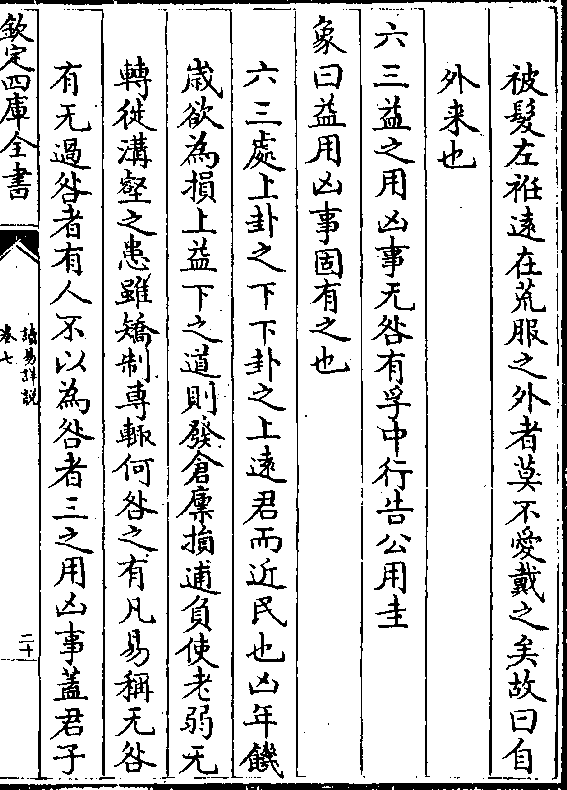 被髮左袵遠在荒服之外者莫不愛戴之矣故曰自
外来也
六三益之用凶事无咎有孚中行告公用圭
象曰益用凶事固有之也
六三處上卦之下下卦之上遠君而近民也凶年饑
歲欲為損上益下之道則發倉廩損逋負使老弱无
轉徙溝壑之患雖矯制專輙何咎之有凡易稱无咎
有无過咎者有人不以為咎者三之用凶事蓋君子
欽定四庫全書
讀易詳說
卷七
二十